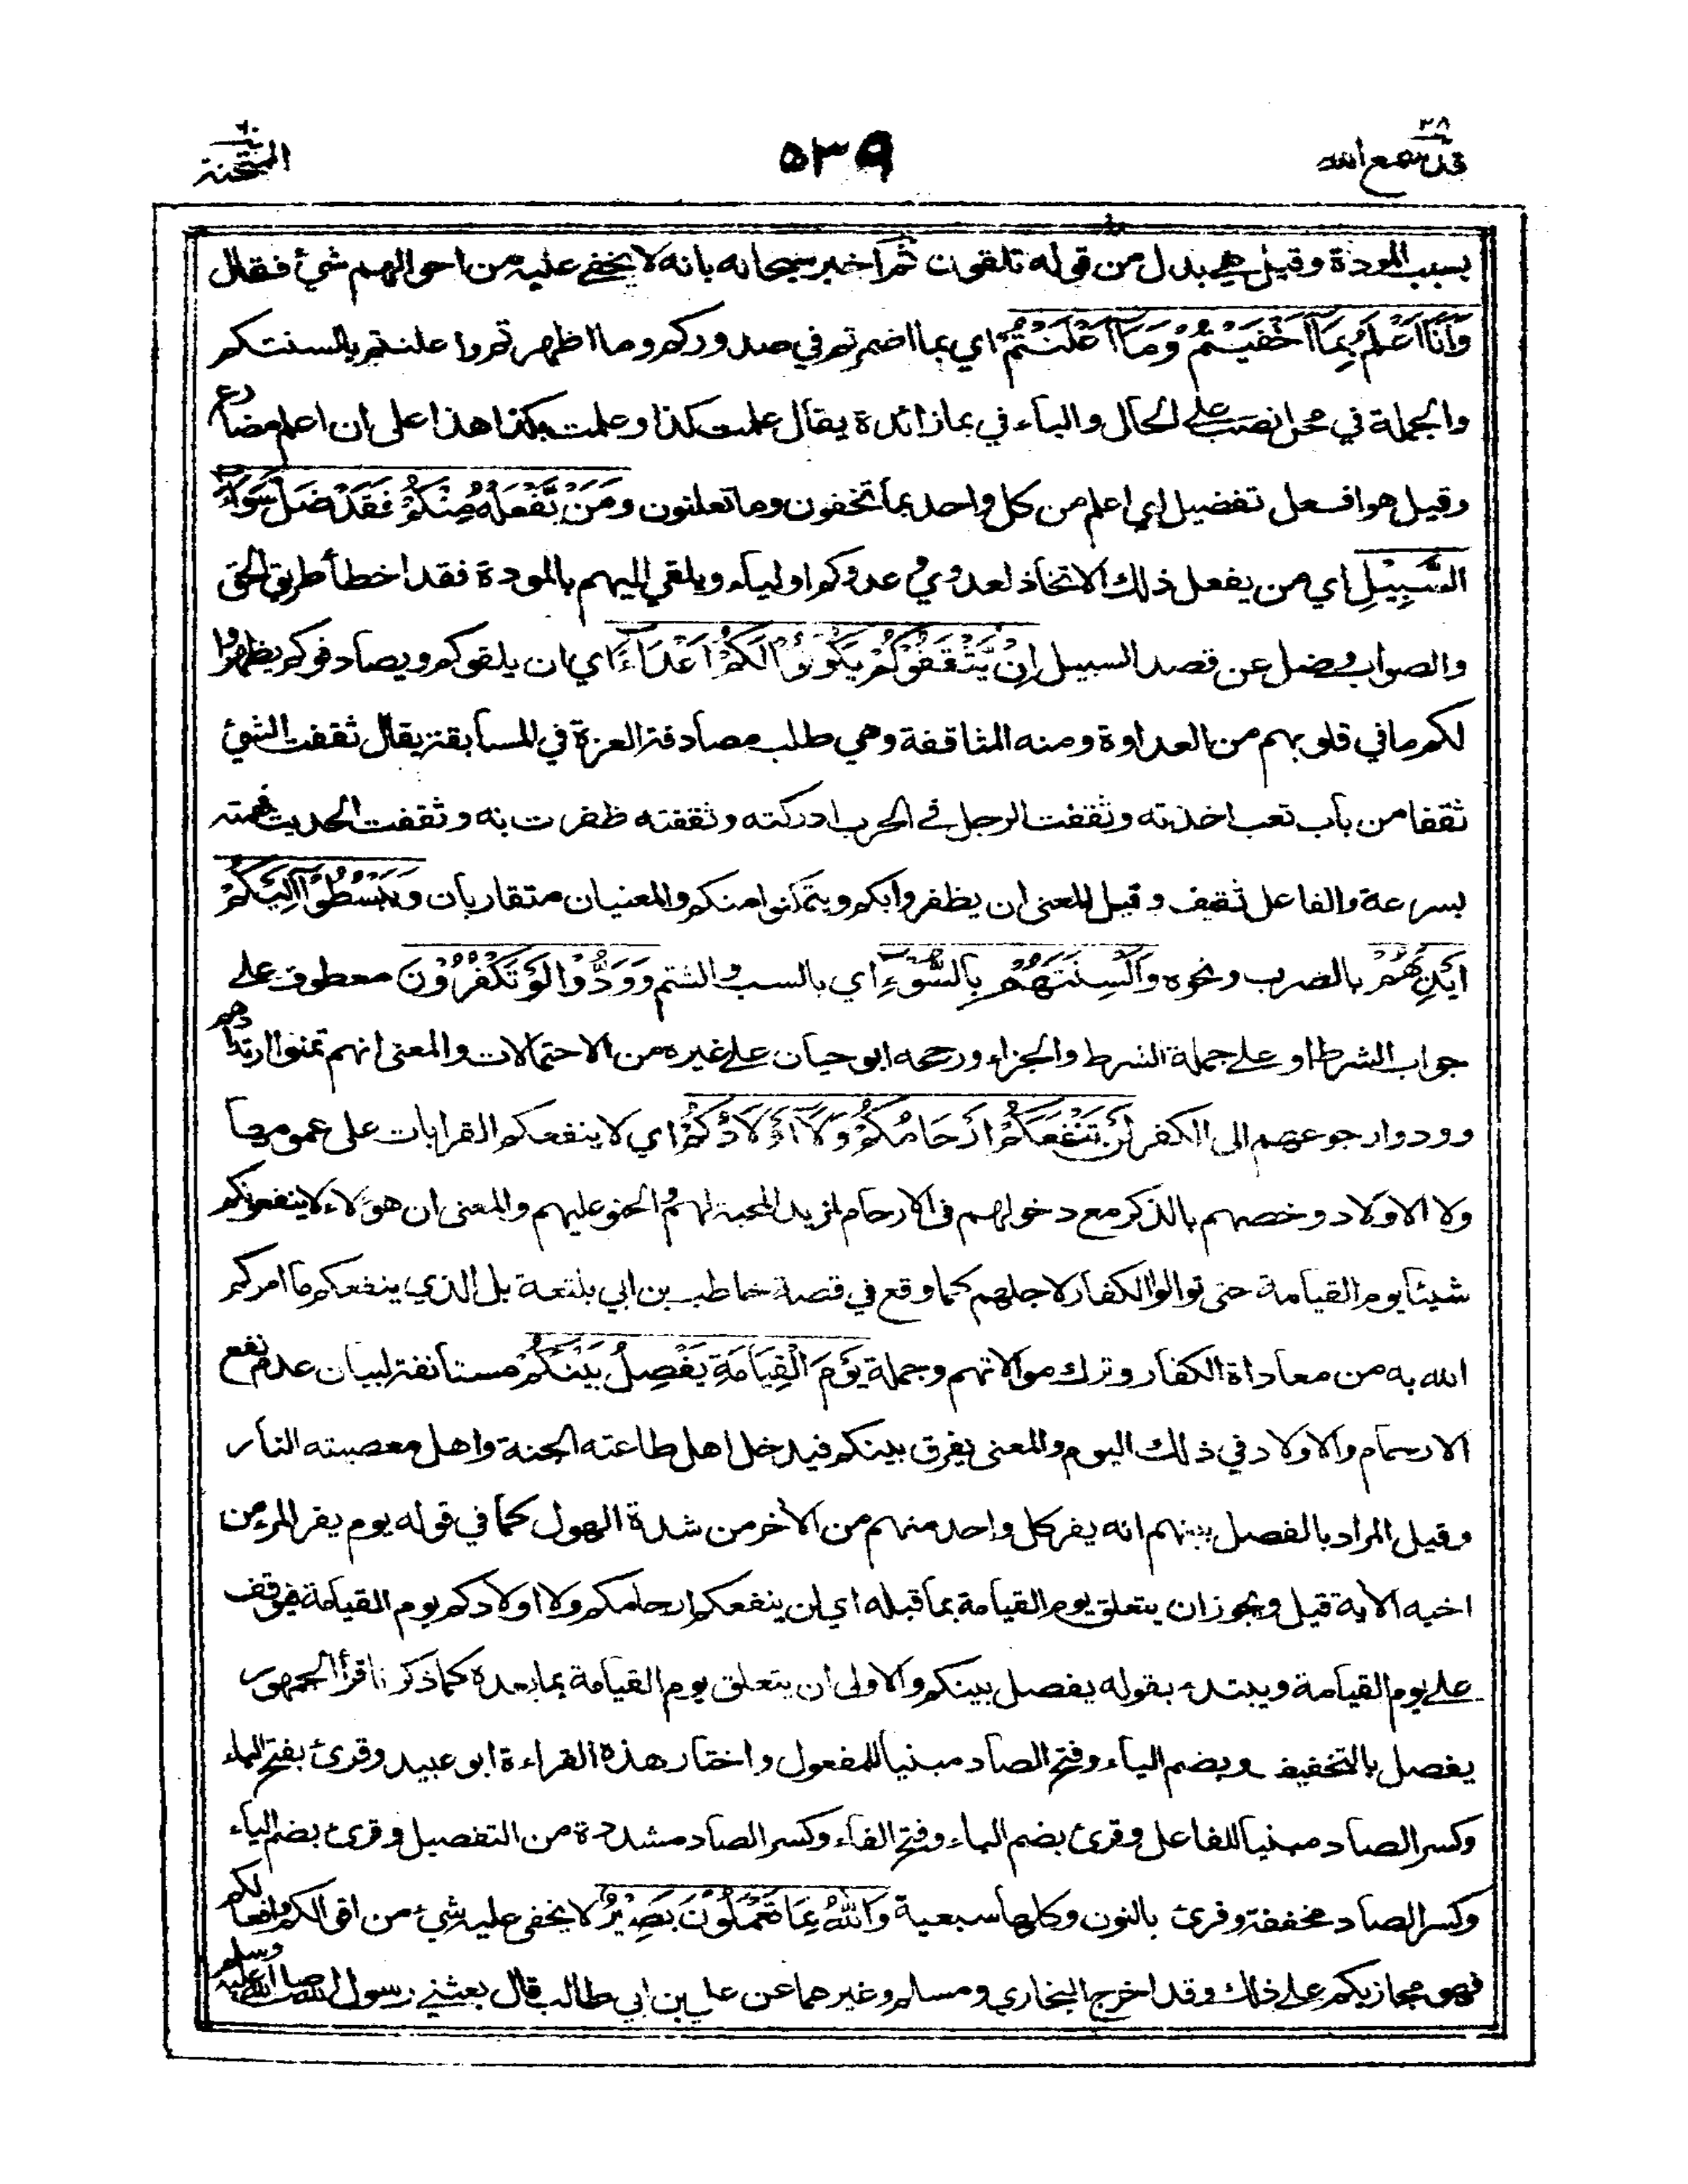 قد سمع الله ٢٨
٥٣٩
الممتحنة ٦٠
بسبب المودة وقيل هي بدل من قوله تلقون ثم اخبر سبحانه بانه لا يخفى عليه من احوالهم شيئ فقال
وَأَنَا أَعْلَمُ بِمَا أَخْفَيْتُمْ وَمَا أَعْلَنْتُمْ اي بما اضمرتم في صدوركم وما اظهرتموا علنتم بالسنتكم
والجملة في محل نصب على الحال والباء في بما زائدة يقال علمت كذا وعلمت بكذا هذا على ان اعلم مضارع
وقيل هو افعل تفضيل اي اعلم من كل واحد بما تخفون وما تعلنون وَمَنْ يَّفْعَلْهُ مِنْكُمْ فَقَدْ ضَلَّ سَوَاءَ
السَّبِيْلِ اي من يفعل ذلك الاتخاذ لعدوي وعدوكم اولياء ويلقي اليهم بالمودة فقد اخطأ طريق الحق
والصواب وضل عن قصد السبيل اِنْ يَّثْقَفُوْكُمْ يَكُوْنُوْا لَكُمْ اَعْدَاءً اي ان يلقوكم ويصادفوكم يظهروا
لكم ما في قلوبهم من العداوة ومنه المثاقفة وهي طلب مصادفة العزة في المسابقة يقال ثقفت الشيئ
ثقفا من باب تعب اخذته وثقفت الرجل في الحرب ادركته وثقفته ظفرت به وثقفت الحديث فهمته
بسرعة والفاعل ثقيف وقيل المعنى ان يظفروا بكم ويتمكنوا منكم والمعنيان متقاربان وَيَبْسُطُوْا اِلَيْكُمْ
اَيْدِيَهُمْ بالضرب ونحوه وَاَلْسِنَتَهُمْ بِالسُّوْءِ اي بالسب والشتم وَوَدُّوْا لَوْ تَكْفُرُوْنَ معطوف على
جواب الشرط او على جملة الشرط والجزاء ورجحه ابو حيان على غيره من الاحتمالات والمعنى انهم تمنوا ارتدادهم
وودوا رجوعهم الى الكفر لَنْ تَنْفَعَكُمْ اَرْحَامُكُمْ وَلَا اَوْلَادُكُمْ اي لا ينفعكم القرابات على عمومها
ولا الاولاد وخصهم بالذكر مع دخولهم فى الارحام لمزيد المحبة لهم والحنو عليهم والمعنى ان هؤلاء لا ينفعونكم
شيئا يوم القيامة حتى توالوا الكفار لاجلهم كما وقع في قصة حاطب بن ابي بلتعة بل الذي ينفعكم ما امركم
الله به من معاداة الكفار وترك موالاتهم وجملة يَوْمَ الْقِيَامَةِ يَفْصِلُ بَيْنَكُمْ مستأنفة لبيان عدم نفع
الارحام والاولاد في ذلك اليوم والمعنى يفرق بينكم فيدخل اهل طاعته الجنة واهل معصيته النار
وقيل المراد بالفصل بينهم انه يفر كل واحد منهم من الأخر من شدة الهول كما في قوله يوم يفر المرء من
اخيه الآية قيل ويجوز ان يتعلق يوم القيامة بما قبله اي لن ينفعكم ارحامكم ولا اولادكم يوم القيامة فيوقف
على يوم القيامة ويبتدء بقوله يفصل بينكم والاولى ان يتعلق يوم القيامة بما بعده كما ذكرنا قرأ الجمهور
يفصل بالتخفيف وبضم الياء وفتح الصاد مبنيا للمفعول واختار هذه القراءة ابو عبيد وقرئ بفتح الياء
وكسر الصاد مبنيا للفاعل وقرئ بضم الياء وفتح الفاء وكسر الصاد مشددة من التفصيل وقرئ بضم الياء
وكسر الصاد مخففة وقرئ بالنون وكلها سبعية وَاللهُ بِمَا تَعْمَلُوْنَ بَصِيْرٌ لا يخفى عليه شيئ من اقوالكم وافعالكم
فهو مجازيكم على ذلك وقد اخرج البخاري ومسلم وغيرهما عن علي بن ابي طالب قال بعثني رسول الله صلى الله عليه وسلم